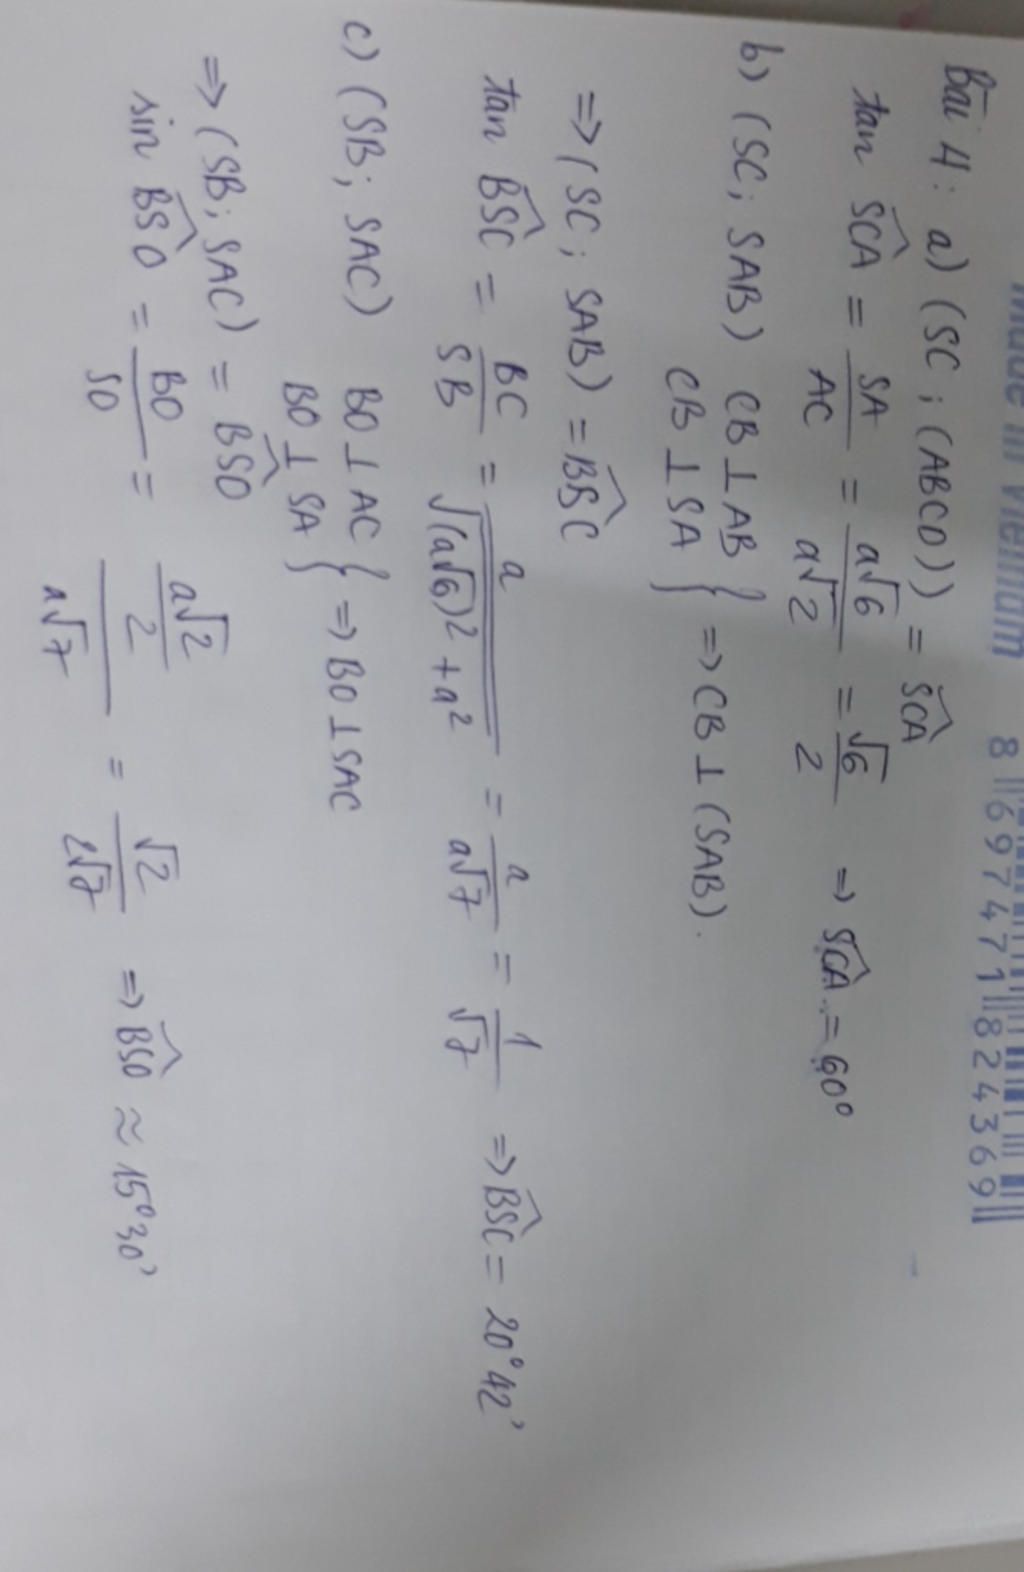 Made in Vietnam 8 697471 824369
Bài 4: a) (SC; (ABCD)) = SCA
tan SCA = SA/AC = a√6/a√2 = √6/2 => SCA = 60°
b) (SC; SAB) CB ⊥ AB
CB ⊥ SA } => CB ⊥ (SAB).
=> (SC; SAB) = BSC
tan BSC = BC/SB = a/√(a√6)² + a² = a/a√7 = 1/√7 => BSC = 20°42'
c) (SB; SAC) BO ⊥ AC
BO ⊥ SA } => BO ⊥ SAC
=> (SB; SAC) = BSO
sin BSO = BO/SO = a√2/2/a√7 = √2/2√7 => BSO ≈ 15°30'